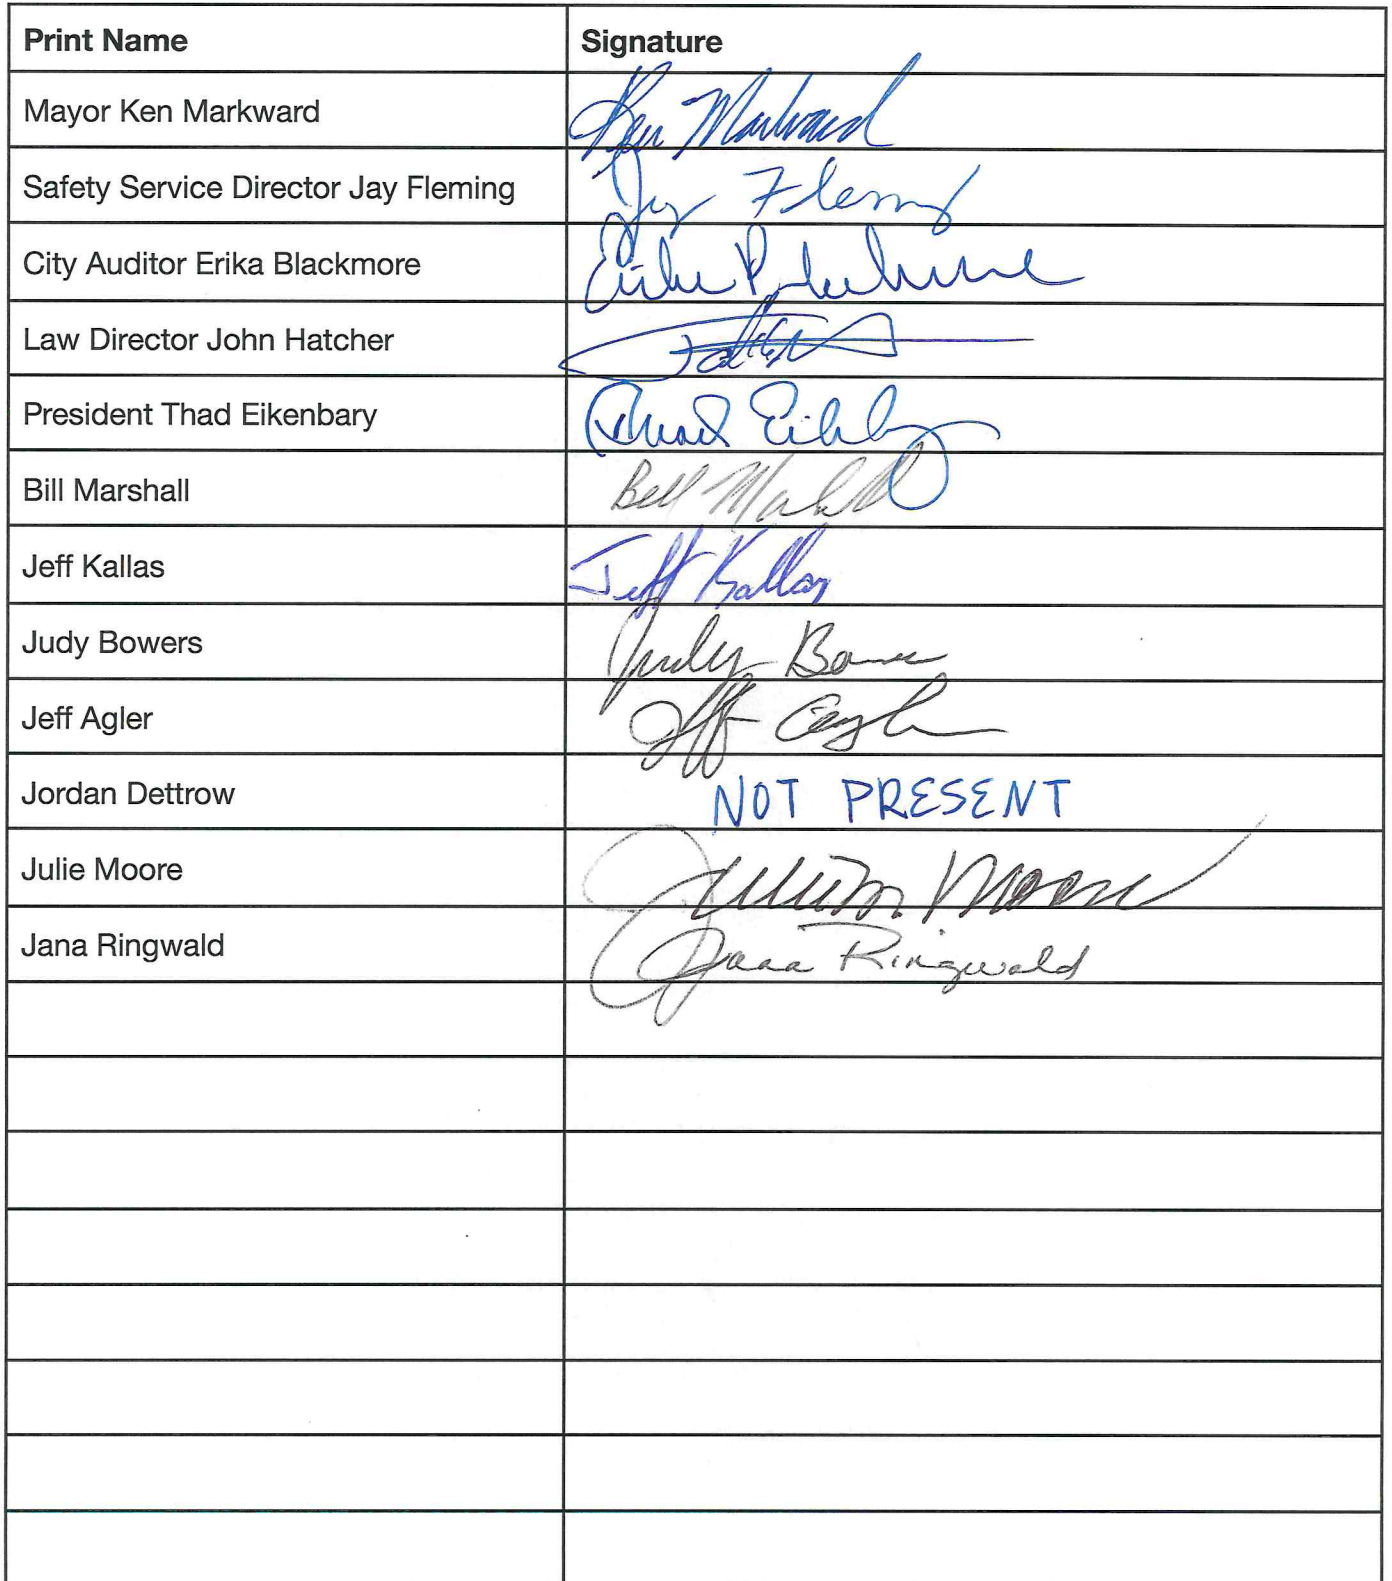 Print Name Signature
Mayor Ken Markward Ken Markward
Safety Service Director Jay Fleming Jay Fleming
City Auditor Erika Blackmore Erika
Law Director John Hatcher
President Thad Eikenbary Thad
Bill Marshall Bill
Jeff Kallas Jeff Kallas
Judy Bowers Judy
Jeff Agler Jeff
Jordan Dettrow NOT PRESENT
Julie Moore Moore
Jana Ringwald Jana Ringwald